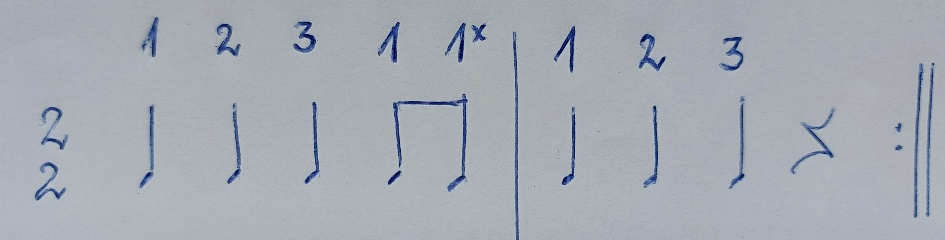 1 2 3 1 1x 1 2 3
2
2